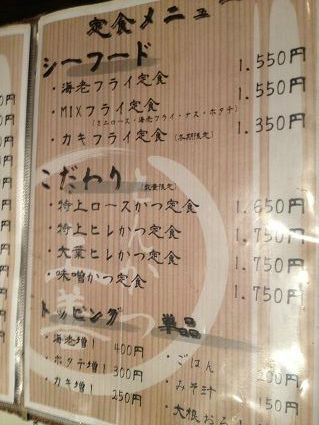 定食メニュー
シーフード
・海老フライ定食 1.550円
・MIXフライ定食 1.550円
(ミニロース・海老フライ・ナス・ホタテ)
・カキフライ定食(冬期限定) 1.350円
こだわり(数量限定)
・特上ロースかつ定食 1.650円
・特上ヒレかつ定食 1.750円
・大葉ヒレかつ定食 1.750円
・味噌かつ定食 1.750円
トッピング
・海老増1 400円
・ホタテ増1 300円
・カキ増1 250円
単品
・ごはん
・みそ汁 150円
・大根おろ